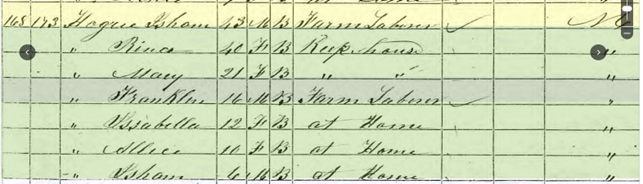 168 173 Hogue Isham 43 M B Farm Laborer N C
" Rinca 40 F B Keep house "
" Mary 21 F B " " "
" Franklin 16 M B Farm Laborer "
" Issabella 12 F B at Home "
" Allice 10 F B at Home "
" Isham 6 M B at Home "